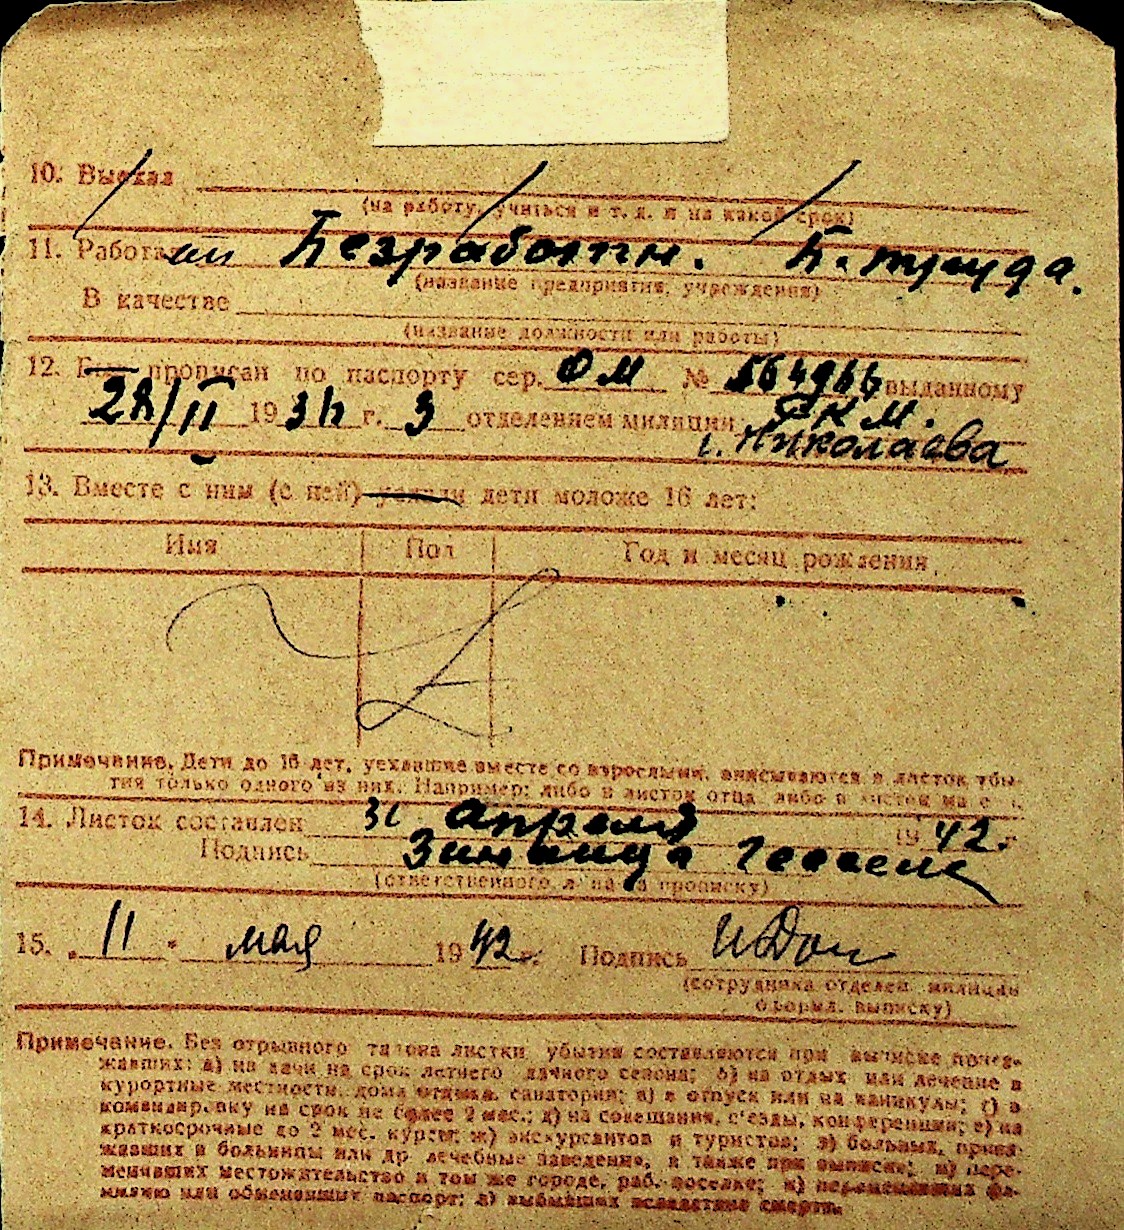 10. Выехал
(на работу, учиться и т. д. и на какой срок)
11. Работал Безработн. Б. труда.
(название предприятия, учреждения)
В качестве
(название должности или работы)
12. Был прописан по паспорту сер. ОМ № выданному
28/II 193 г. 3 отделением милиции Р К М.
г. Николаева
13. Вместе с ним (с ней) уехали дети моложе 16 лет:
Имя Пол Год и месяц рождения
Примечание. Дети до 16 лет, уехавшие вместе со взрослыми, вписываются в листок убы-
тия только одного из них. Например: либо в листок отца либо в листок
14. Листок составлен 31 апреля 1942 г.
Подпись
(ответственного лица за прописку)
15. „11" мая 1942 г. Подпись
(сотрудника отделен. милиции
оформл. выписку)
Примечание. Без отрывного талона листки убытия составляются при выписке поез-
жавших: а) на дачи на срок летнего дачного сезона; б) на отдых или лечение в
курортные местности, дома отдыха, санатории; в) в отпуск или на каникулы; г) в
командировку на срок не более 2 мес.; д) на совещания, с'езды, конференции; е) на
краткосрочные до 2 мес. курсы; ж) экскурсантов и туристов; з) больных,
жавших в больницы или др лечебные заведения, а также при выписке; и) пере-
менивших местожительство в том же городе, раб. поселке; к) переменивших фа-
милию или обменявших паспорт; л) выбывших вследствие смерти.